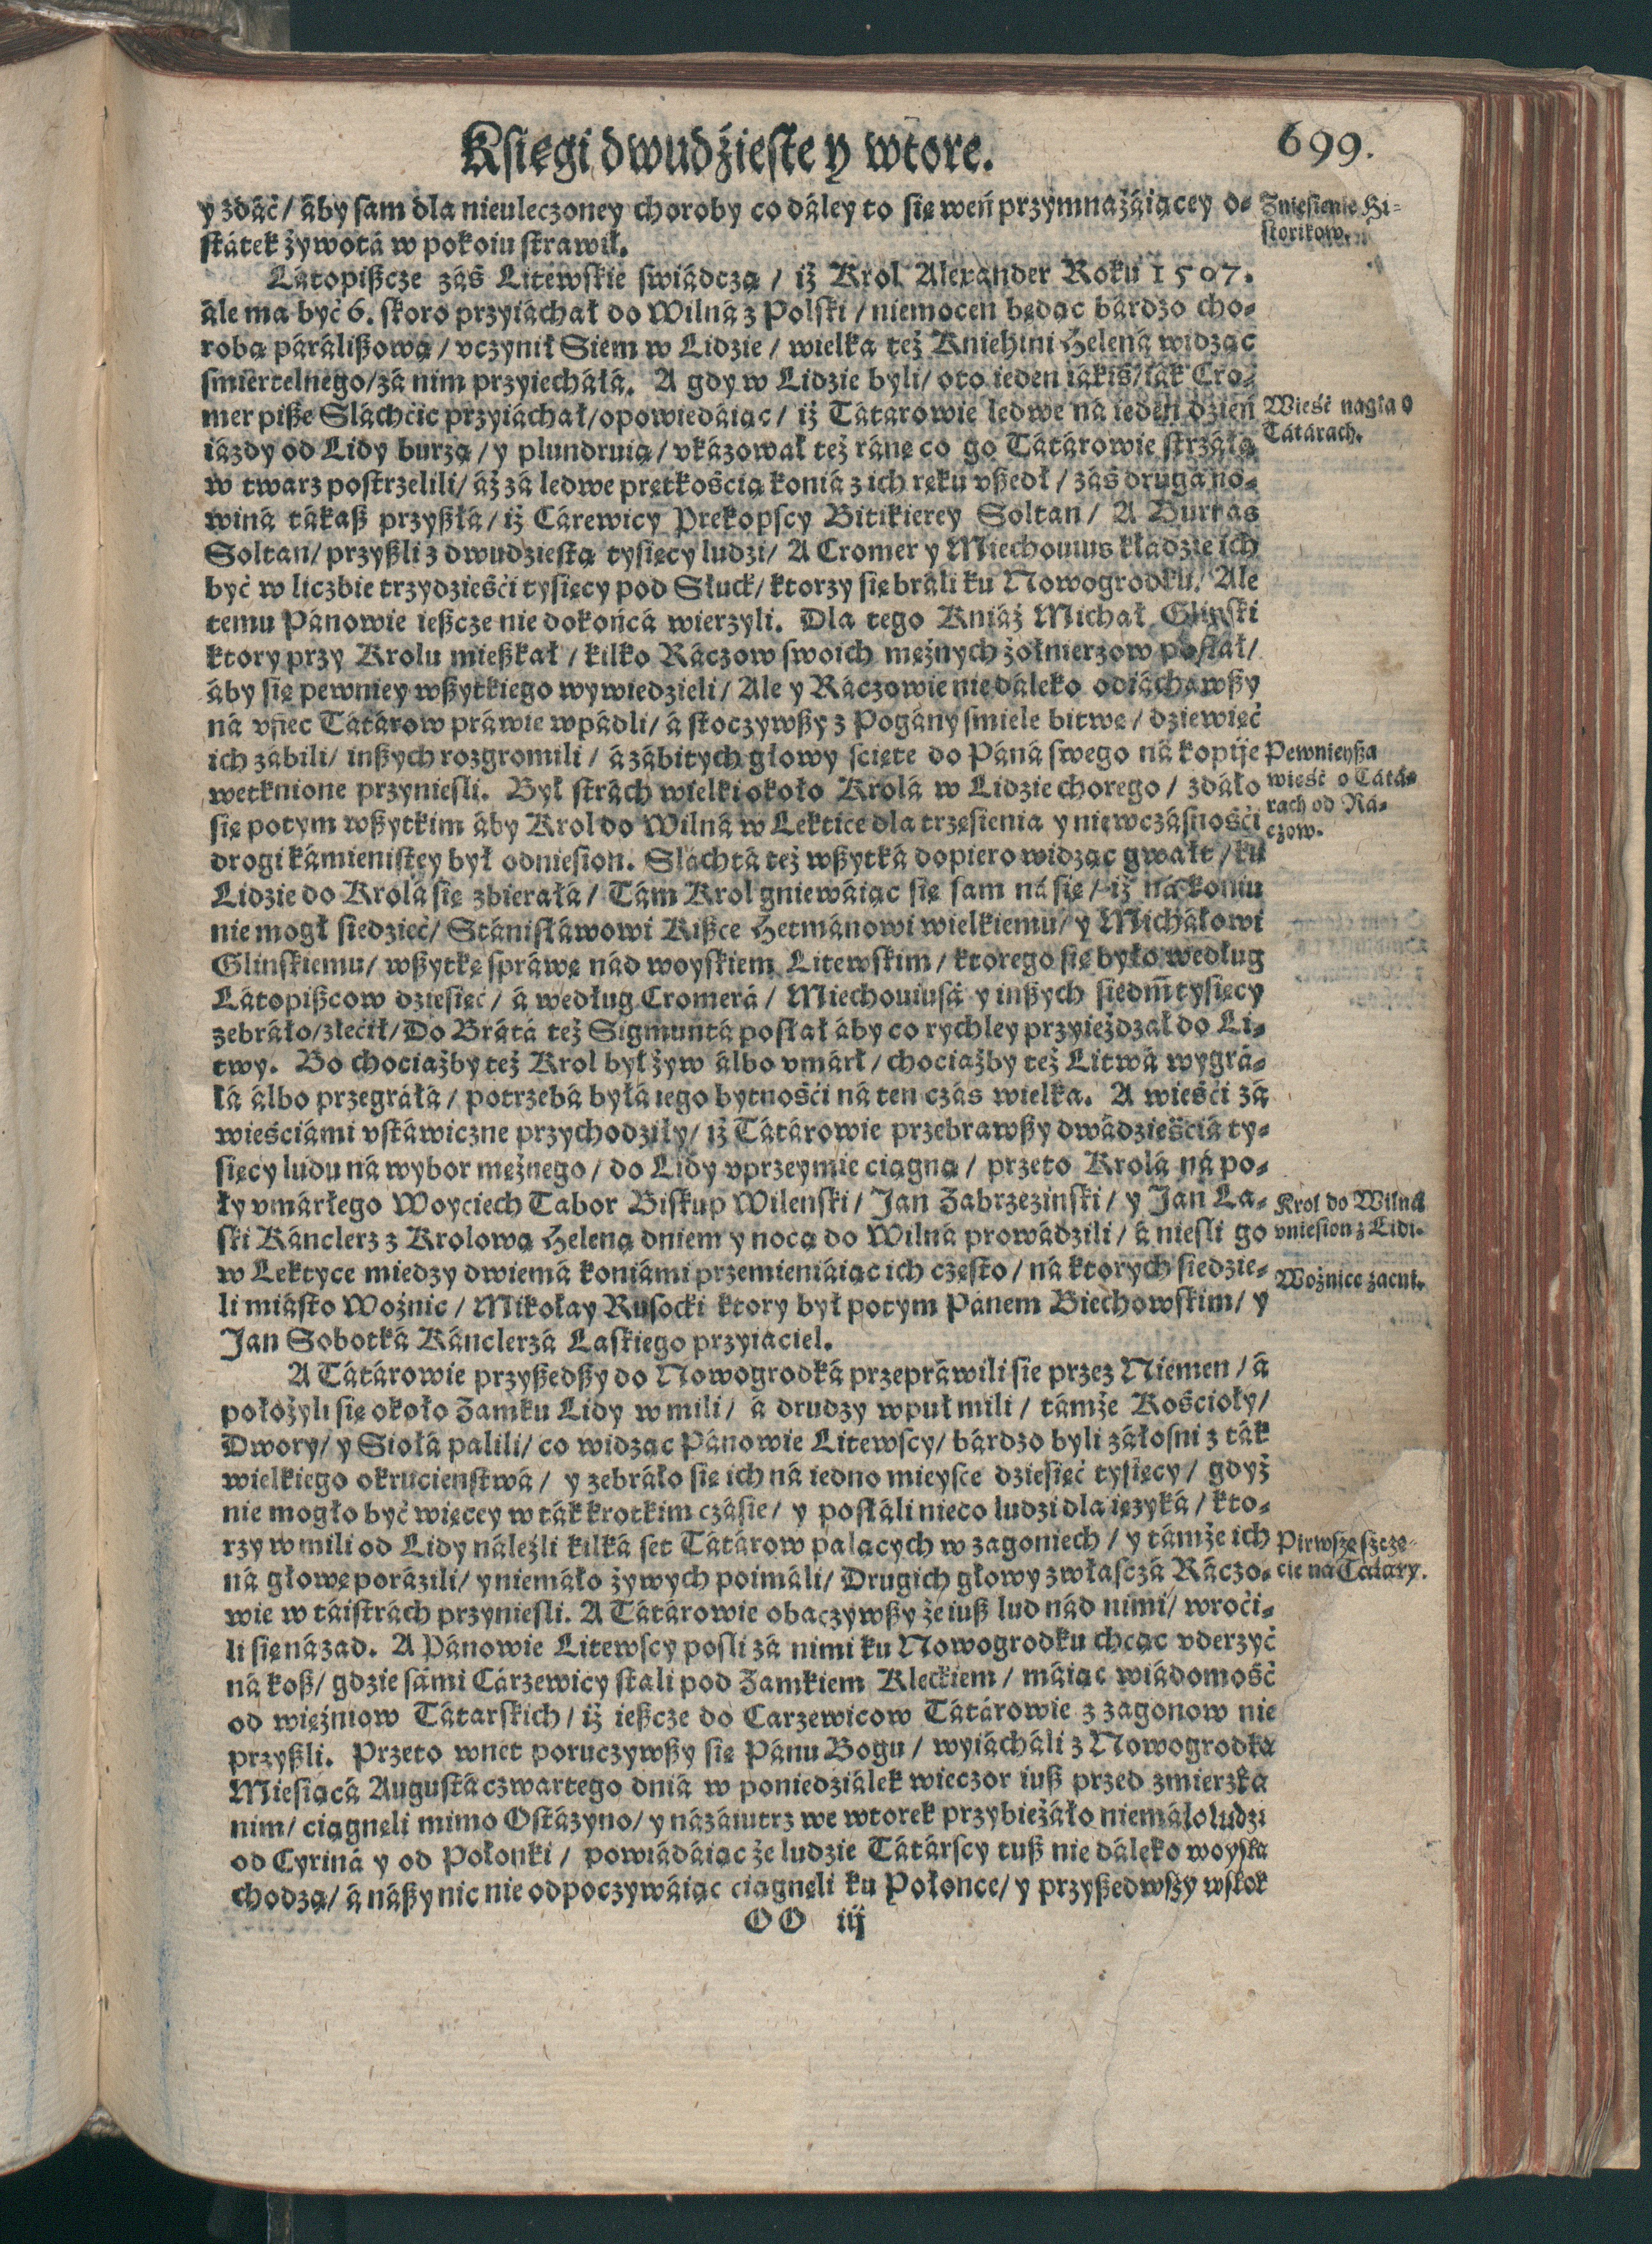 Księgi dwudźieste y wtore. 699.
y zdáć / áby sam dla nieuleczoney choroby co dáley to się weń przymnażáiącey o-
státek żywotá w pokoiu strawił.
Zniesienie Hi-
storikow.
Látopißcze záś Litewskie swiádczą / iż Krol Alexander Roku 1507.
ále ma być 6. skoro przyiáchał do Wilná z Polski / niemocen będąc bárdzo cho-
robą párálißową / vczynił Siem w Lidzie / wielka też Kniehini Helená widząc
smiertelnego / zá nim przyiecháłá. A gdy w Lidzie byli / oto ieden iákiś / iák Cro-
mer piße Sláchćic przyiáchał / opowiedáiąc / iż Tátarowie ledwe ná ieden dzień
Wieść nagła o
Tátárach.
iázdy od Lidy burzą / y plundruią / vkázował też ránę co go Tátárowie strzáłą
w twarz postrzelili / áż zá ledwe prętkością koniá z ich ręku vßedł / záś druga no-
winá tákaß przyßłá / iż Cárewicy Prekopscy Bitikierey Soltan / A Burnas
Soltan / przyßli z dwudziestą tysięcy ludzi / A Cromer y Miechouius kłádzie ich
być w liczbie trzydzieśći tysięcy pod Słuck / ktorzy się bráli ku Nowogrodku. Ale
temu Pánowie ießcze nie dokońcá wierzyli. Dla tego Kniáź Michał Glinski
ktory przy Krolu mießkał / kilko Ráczow swoich mężnych żołnierzow posłał /
áby się pewniey wßytkiego wywiedzieli / Ale y Ráczowie nie dáleko odiáchawßy
ná vffiec Tátárow práwie wpádli / á stoczywßy z Pogány smiele bitwę / dziewięć
ich zábili / inßych rozgromili / á zábitych głowy ścięte do Páná swego ná kopije
Pewnieyßa
wieść o Tátá-
rach od Rá-
czow.
wetknione przyniesli. Był stràch wielki około Krolá w Lidzie chorego / zdáło
się potym wßytkim áby Krol do Wilná w Lektice dla trzęsienia y niewczásnośći
drogi kámienistey był odniesion. Sláchtá też wßytká dopiero widząc gwałt / ku
Lidzie do Krolá się zbieráłá / Tám Krol gniewáiąc się sam ná się / iż ná koniu
nie mogł siedzieć / Stánisłáwowi Kißce Hetmánowi wielkiemu / y Micháłowi
Glinskiemu / wßytkę spráwę nád woyskiem Litewskim / ktorego się było według
Látopißcow dziesięć / á według Cromerá / Miechouiusá y inßych siedm̃ tysięcy
zebráło / zlećił / Do Brátá też Sigmuntá posłał áby co rychley przyieżdzał do Li-
twy. Bo chociażby też Krol był żyw álbo vmárł / chociażby też Litwá wygrá-
łá álbo przegráłá / potrzebá byłá iego bytnośći ná ten czás wielka. A wieśći zá
wieściámi vstáwiczne przychodziły / iż Tátárowie przebrawßy dwádzieściá ty-
sięcy ludu ná wybor mężnego / do Lidy vprzeymie ciągną / przeto Krolá ná po-
ły vmárłego Woyciech Tabor Biskup Wilenski / Jan Zabrzezinski / y Jan La-
ski Kánclerz z Krolową Heleną dniem y nocą do Wilná prowádzili / á niesli go
Krol do Wilná
vniesion z Lidi.
w Lektyce miedzy dwiemá koniámi przemieniáiąc ich często / ná ktorych siedzie-
li miásto Woźnic / Mikołay Rusocki ktory był potym Pánem Biechowskim / y
Woźnice zacni.
Jan Sobotká Kánclerzá Laskiego przyiaciel.
A Tátárowie przyßedßy do Nowogrodká przepráwili sie przez Niemen / á
położyli się około Zamku Lidy w mili / á drudzy wpuł mili / támże Kościoły /
Dwory / y Siołá palili / co widząc Pánowie Litewscy / bárdzo byli záłosni z ták
wielkiego okrucienstwá / y zebráło się ich ná iedno mieysce dziesięć tysięcy / gdyż
nie mogło być więcey w ták krotkim czásie / y posłáli nieco ludzi dla ięzyká / kto-
rzy w mili od Lidy náleźli kilká set Tátárow palących w zagoniech / y támże ich
Pirwsze szcze-
cie na Tatary.
ná głowę porázili / y niemáło żywych poimáli / Drugich głowy zwłasczá Ráczo-
wie w táistrách przyniesli. A Tátárowie obaczywßy że iuß lud nád nimi / wroći-
li się názad. A Pánowie Litewscy posli zá nimi ku Nowogrodku chcąc vderzyć
ná koß / gdzie sámi Cárzewicy stali pod Zamkiem Kleckiem / máiąc wiádomość
od więźniow Tátarskich / iż ießcze do Carzewicow Tátárowie z zagonow nie
przyßli. Przeto wnet poruczywßy się Pánu Bogu / wyiácháli z Nowogrodká
Miesiącá Augustá czwartego dniá w poniedziálek wieczor iuß przed zmierzká
nim / ciągnęli mimo Ostázyno / y názáiutrz we wtorek przybieżáło niemáło ludzi
od Cyriná y od Połonki / powiádáiąc że ludzie Tátárscy tuß nie dáleko woyská
chodzą / á náßy nic nie odpoczywáiąc ciągnęli ku Połonce / y przyßedwszy wskok
OO iij